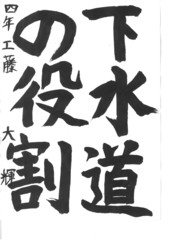 下水道
の役割
四年 工藤 大輝